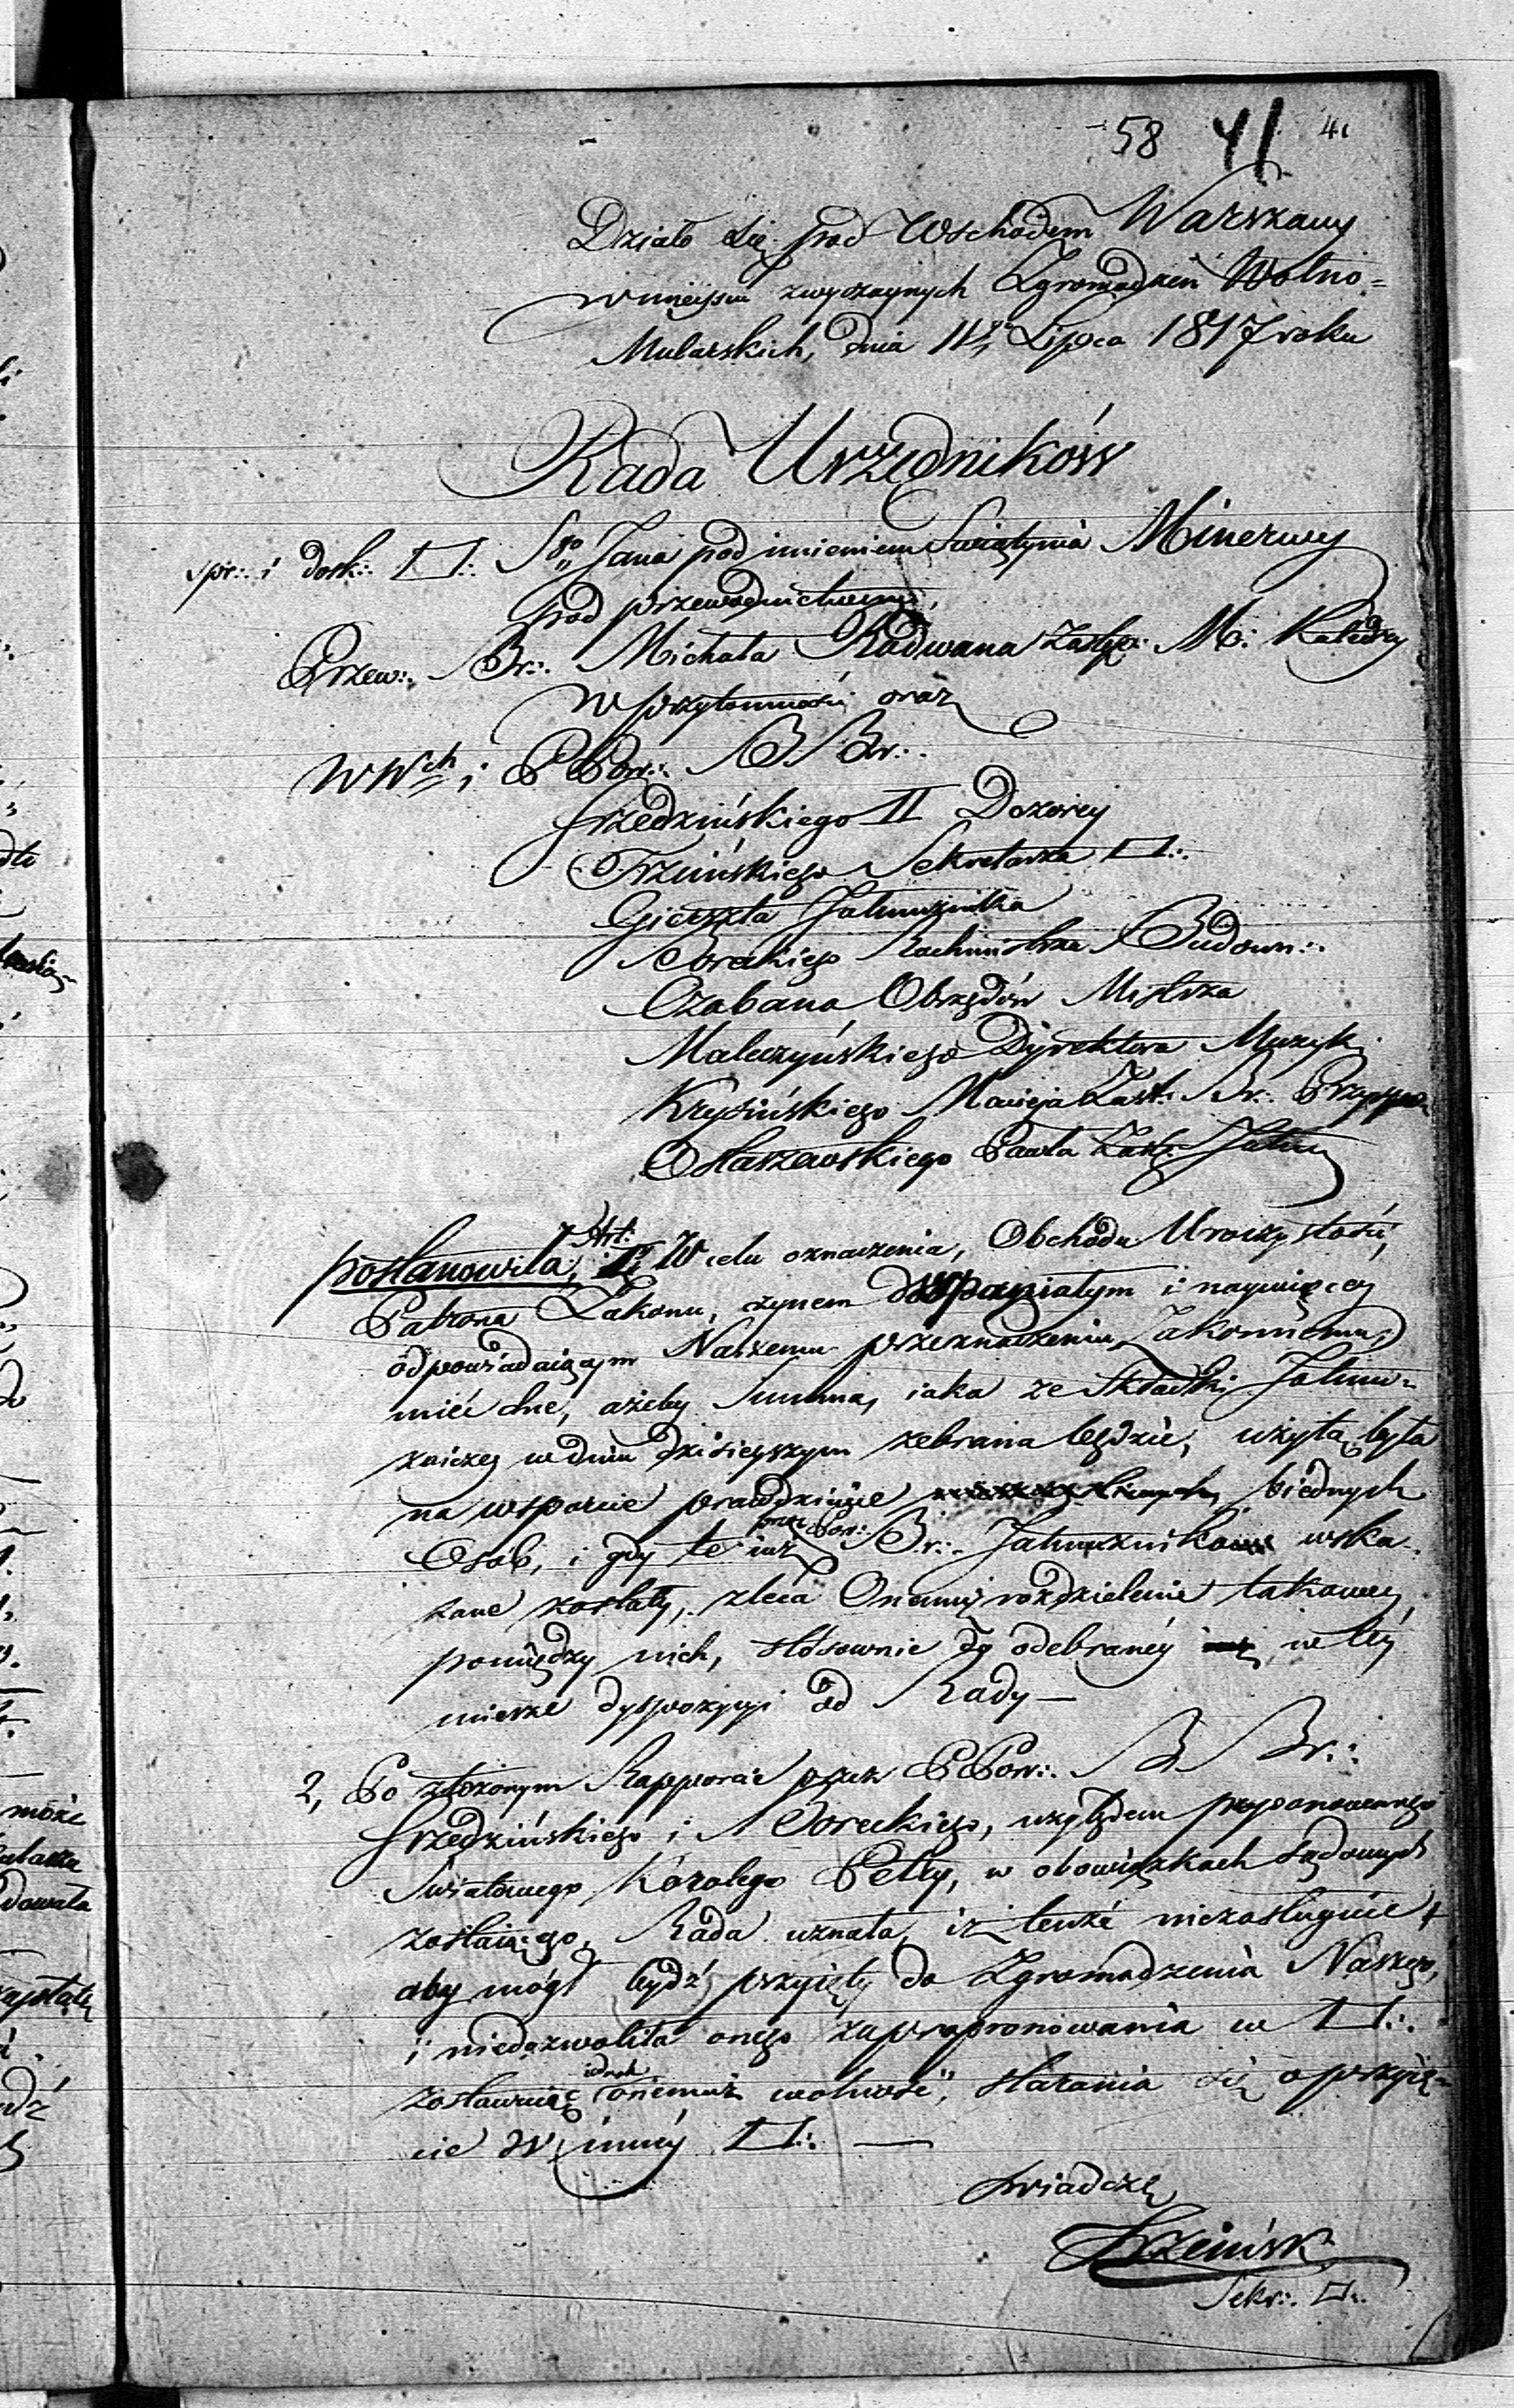 58 41 41
Działo się pod Wschodem Warszawy
w mieyscu zwyczaynych Zgromadzeń Wolno=
Mularskich, dnia 11go Lipca 1817 roku
Rada Urzędników
spr∴ i dosk∴ □∴ Sgo Jana pod imieniem Swiątynia Minerwy
pod przewodnictwem,
Przew∴ Br∴ Michała Radwana Zastęp: M: Katedry
w przytomności oraz
WWch i PPow∴ BBr∴
Srzedzińskiego II Dozorcy
Trzcińskiego Sekretarza □∴
Gierszta Jałmużnika
Noreckiego Rachmistrza Budown∴
Czabana Obrzędów Mistrza
Maleczyńskiego Dyrektora Muzyk:
Krysińskiego Macieja Zast: Br∴ Przypo
Ostaszewskiego Pawła Zast: Jałm
postanowiła, Art: I, W celu oznaczenia, Obchodu Uroczystości,
Patrona Zakonu, czynem wspaniałym i naywięcey
odpowiadaiącym Naszemu przeznaczeniu Zakonnemu,
mieć chce, ażeby Summa, iaka ze Składki Jałmu=
żniczey w dniu dzisieyszym zebrana będzie, użytą była
na wsparcie prawdziwie biednych
Osób, i gdy te już przez Pow: Br∴ Jałmużnika wska=
zane zostały, zleca Onemuż rozdzielenie takowey,
pomiędzy nich, stósownie do odebranéy w téy
mierze dyspozycyi od Rady —
2, Po złożonym Rapporcie przez PPow∴ BBr∴
Srzedzińskiego i Noreckiego, względem proponowanego
Swiatowego Karolego Petry, w obowiązkach sądowych
zostaiącego, Rada uznała, iż tenże niezasługuie
aby mógł bydź przyięty do Zgromadzenia Naszego,
i niedozwoliła onego zaproponowania w □∴
zostawuiąc iednak onemuż wolność, starania się o przyię=
cie w innéy □∴ —
świadczę
Trzcińsk
Sekr∴ □∴